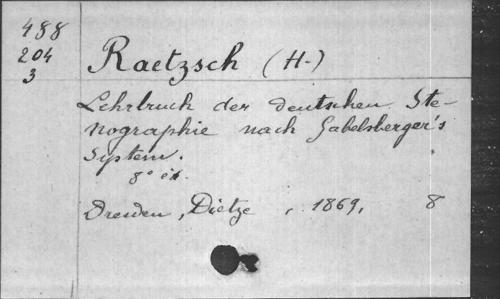 488
204
3
Raetzsch (H-)
Lehrbuch der deutschen Ste-
nographie nach Gabelsberger's
System.
8° éd.
Dresden, Dietze, 1869, 8